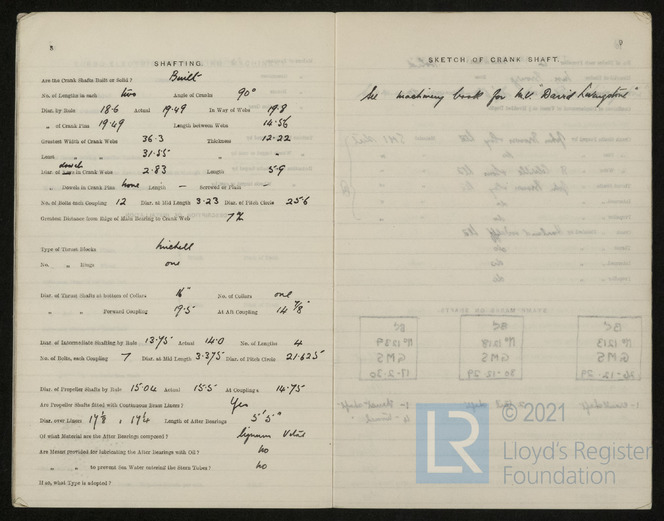 8
SHAFTING.
Are the Crank Shafts Built or Solid? Built
No. of Lengths in each two Angle of Cranks 90°
Diar. by Rule 18.6 Actual 19.49 In Way of Webs 19.8
„ of Crank Pins 19.49 Length between Webs 14.56
Greatest Width of Crank Webs 36.3 Thickness 12.22
Least „ „ 31.55 „
Diar. of dowels in Crank Webs 2.83 Length 5.9
„ Dowels in Crank Pins none Length — Screwed or Plain —
No. of Bolts each Coupling 12 Diar. at Mid Length 3.23 Diar. of Pitch Circle 25.6
Greatest Distance from Edge of Main Bearing to Crank Web
Type of Thrust Blocks Michell
No. „ Rings one
Diar. of Thrust Shafts at bottom of Collars 16" No. of Collars one
„ „ Forward Coupling 19.5 At Aft Coupling 14 7/8"
Diar. of Intermediate Shafting by Rule 13.75 Actual 14.0 No. of Lengths 4
No. of Bolts, each Coupling 7 Diar. at Mid Length 3.375 Diar. of Pitch Circle 21.625"
Diar. of Propeller Shafts by Rule 15.04 Actual 15.5 At Couplings 14.75
Are Propeller Shafts fitted with Continuous Brass Liners? Yes
Diar. over Liners Length of After Bearings 5' 5"
Of what Material are the After Bearings composed? Lignum Vitae
Are Means provided for lubricating the After Bearings with Oil? No
„ „ to prevent Sea Water entering the Stern Tubes? No
If so, what Type is adopted?
9
SKETCH OF CRANK SHAFT.
See machinery book for M.V. David Livingstone"
© 2021
LR
Lloyd's Register
Foundation